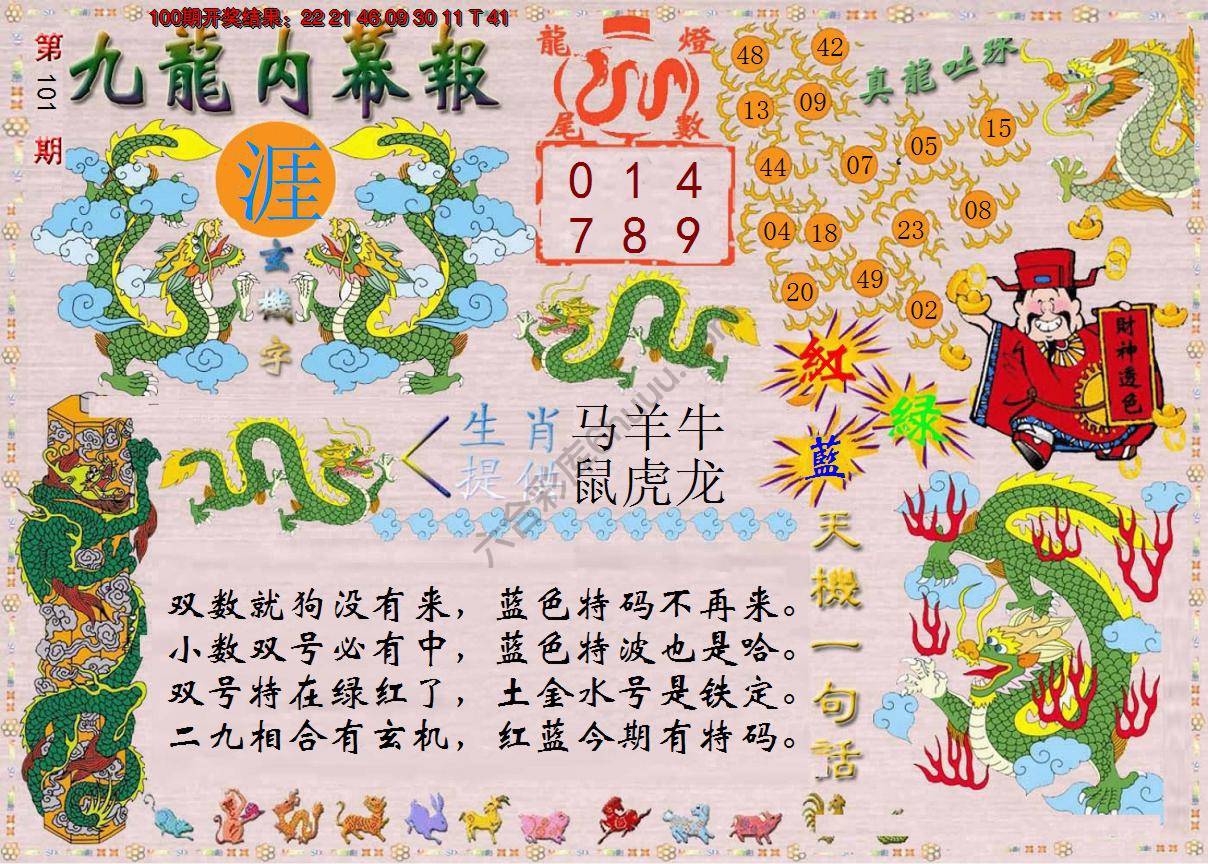 100期开奖结果：22 21 46 09 30 11 T 41
第101期
九龍内幕報
龍燈
尾數
0 1 4
7 8 9
真龍吐珠
48 42
13 09
44 07 05 15
04 18 23 08
20 49 02
涯
玄機字
財神透色
紅
綠
藍
生肖 马羊牛
提供 鼠虎龙
天機一句話
双数就狗没有来，蓝色特码不再来。
小数双号必有中，蓝色特波也是哈。
双号特在绿红了，土金水号是铁定。
二九相合有玄机，红蓝今期有特码。